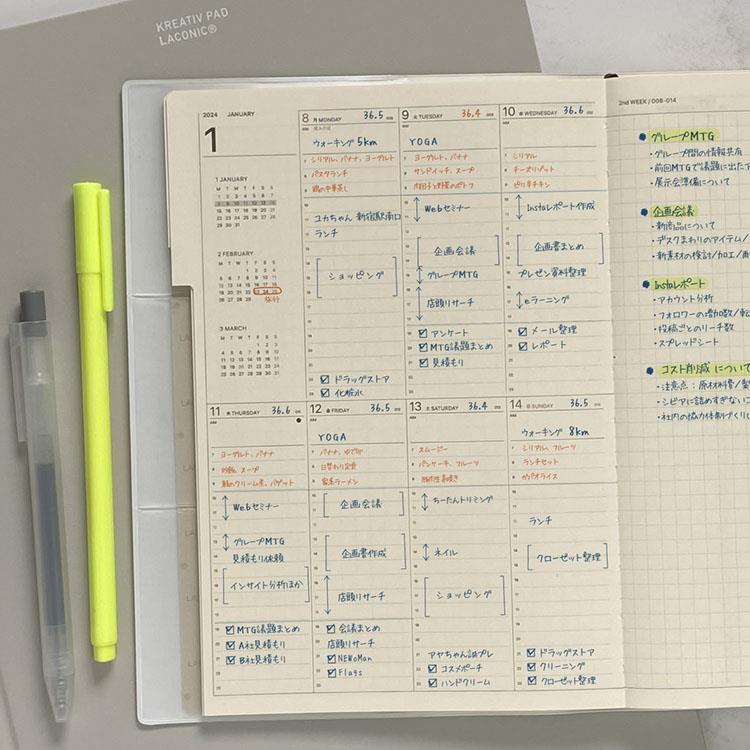 KREATIV PAD
LACONIC®
2024 JANUARY
1
1 JANUARY
M T W T F S S
1 2 3 4 5 6 7
8 9 10 11 12 13 14
15 16 17 18 19 20 21
22 23 24 25 26 27 28
29 30 31
2 FEBRUARY
M T W T F S S
1 2 3 4
5 6 7 8 9 10 11
12 13 14 15 16 17 18
19 20 21 22 23 24 25
26 27 28 29
旅行
3 MARCH
M T W T F S S
1 2 3
4 5 6 7 8 9 10
11 12 13 14 15 16 17
18 19 20 21 22 23 24
25 26 27 28 29 30 31
8 月 MONDAY 36.5
成人の日
ウォーキング 5km
シリアル、バナナ、ヨーグルト
パスタランチ
鶏の中華蒸し
ユカちゃん 新宿駅南口
ランチ
ショッピング
ドラッグストア
化粧水
9 火 TUESDAY 36.4
YOGA
ヨーグルト、バナナ
サンドイッチ、スープ
肉団子と野菜のポトフ
Webセミナー
企画会議
グループMTG
店頭リサーチ
アンケート
MTG議題まとめ
見積もり
10 水 WEDNESDAY 36.6
シリアル
チーズリゾット
ピリ辛チキン
Instaレポート作成
企画書まとめ
プレゼン資料整理
eラーニング
メール整理
レポート
11 木 THURSDAY 36.6
ヨーグルト、バナナ
スープ
鮭のクリーム煮、バゲット
Webセミナー
グループMTG
見積もり依頼
インサイト分析ほか
MTG議題まとめ
A社見積もり
B社見積もり
12 金 FRIDAY 36.5
YOGA
バナナ、ゆで卵
日替わり定食
家系ラーメン
企画会議
企画書作成
店頭リサーチ
会議まとめ
店頭リサーチ
NEWoMan
Flags
13 土 SATURDAY 36.4
スムージー
パンケーキ、フルーツ
ちーたんトリミング
ネイル
ショッピング
アヤちゃん誕プレ
コスメポーチ
ハンドクリーム
14 日 SUNDAY 36.5
ウォーキング 8km
シリアル、フルーツ
ランチセット
ガパオライス
ランチ
クローゼット整理
ドラッグストア
クリーニング
クローゼット整理
2nd WEEK / 008-014
グループMTG
・グループ間の情報共有
・前回MTGで議題に出たア
・展示会準備について
企画会議
・新商品について
・デスクまわりのアイテム/
・新素材の検討/加工/
Instaレポート
・アカウント分析
・フォロワーの増加数/
・投稿ごとのリーチ数
・スプレッドシート
コスト削減 について
・注意点：原材料費/
・シビアに詰めすぎない
・社内の協力体制づくり